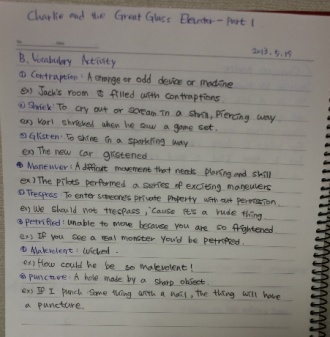 Charlie and the Great Glass Elevator - Part 1
2013. 5. 15
B. Vocabulary Activity
① Contraption: A strange or odd device or machine
ex) Jack's room is filled with contraptions
② Shriek: To cry out or scream in a shrill, piercing way
ex) Karl shrieked when he saw a game set.
③ Glisten: To shine in a sparkling way
ex) The new car glistened
④ Maneuver: A difficult movement that needs planning and skill
ex) The pilots performed a series of exciting maneuvers
⑤ Trespass: To enter someone's private property without permission
ex) We should not trespass, 'cause it's a rude thing
⑥ Petrified: Unable to move because you are so frightened
ex) If you see a real monster you'd be petrified.
⑦ Malevolent: Wicked.
ex) How could he be so malevolent!
⑧ Puncture: A hole made by a sharp object.
ex) If I punch some thing with a nail, the thing will have
a puncture.